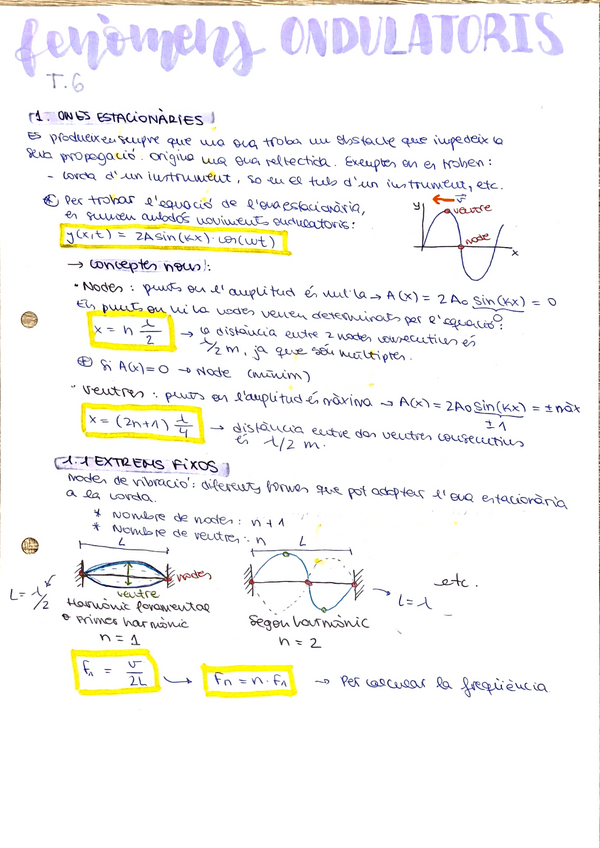 fenòmens ONDULATORIS
T.6
1. ONES ESTACIONÀRIES
Es produeixen sempre que una ona troba un obstacle que impedeix la
seva propagació. Origina una ona reflectida. Exemples on es troben:
- Corda d'un instrument, so en el tub d'un instrument, etc.
* Per trobar l'equació de l'ona estacionària,
es sumen ambdós moviments ondulatoris:
y(x,t) = 2A sin(kx)·cos(wt)
y
v
ventre
node
x
→ Conceptes nous!:
• Nodes: punts on l'amplitud és nul·la → A(x) = 2A₀ sin(kx) = 0
0
Els punts on hi ha nodes venen determinats per l'equació:
x = n λ/2 → la distància entre 2 nodes consecutius és
λ/2 m, ja que són múltiples.
* Si A(x)=0 → Node (mínim)
• Ventres: punts on l'amplitud és màxima → A(x) = 2A₀ sin(kx) = ± màx
±1
x = (2n+1) λ/4 → distància entre dos ventres consecutius
és λ/2 m.
1.1 EXTREMS FIXOS
Modes de vibració: diferents formes que pot adoptar l'ona estacionària
a la corda.
* Nombre de nodes: n+1
* Nombre de ventres: n
L
L
nodes
ventre
L = λ/2
L = λ
etc.
Harmònic fonamental
o Primer harmònic
n = 1
Segon harmònic
n = 2
f₁ = v/2L → fn = n·f₁ → Per calcular la freqüència